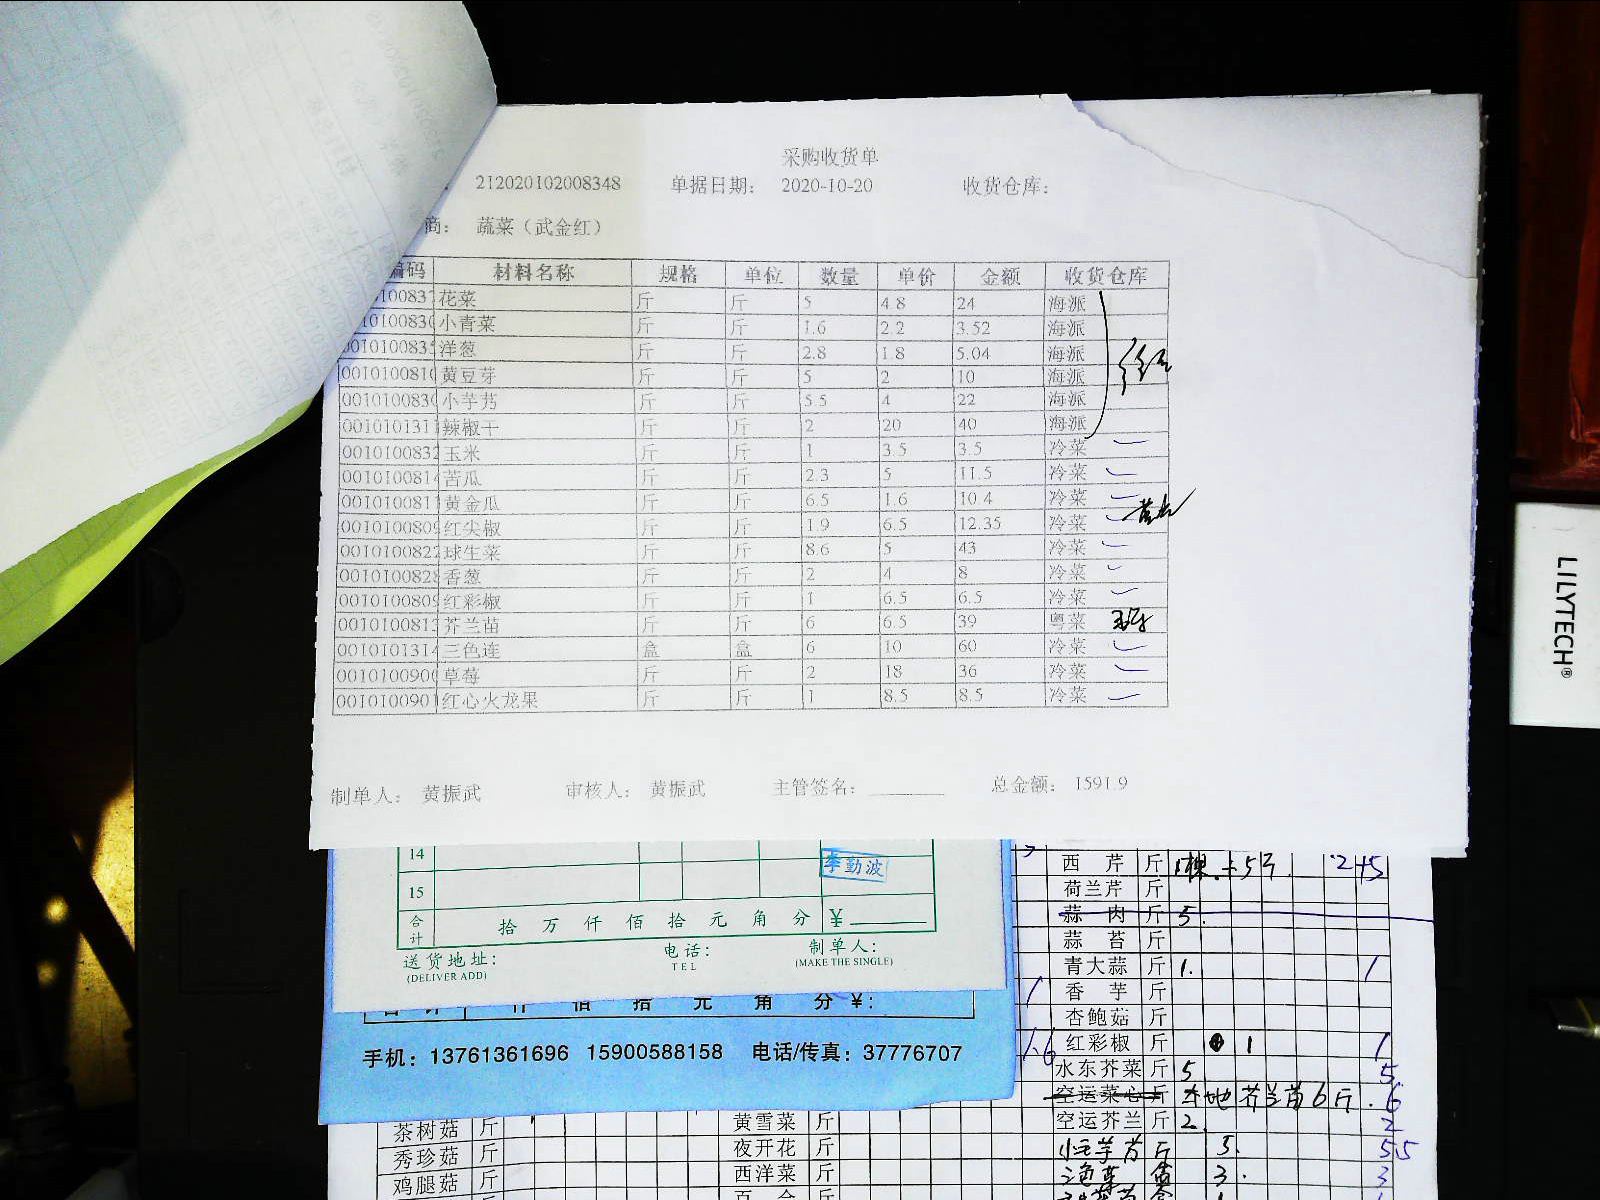 采购收货单
212020102008348 单据日期: 2020-10-20 收货仓库:
商: 蔬菜（武金红）
编码 材料名称 规格 单位 数量 单价 金额 收货仓库
花菜 斤 斤 5 4.8 24 海派
小青菜 斤 斤 1.6 2.2 3.52 海派
001010083 洋葱 斤 斤 2.8 1.8 5.04 海派
001010081 黄豆芽 斤 斤 5 2 10 海派
001010083 小芋艿 斤 斤 5.5 4 22 海派
001010131 辣椒干 斤 斤 2 20 40 海派
0010100832 玉米 斤 斤 1 3.5 3.5 冷菜
0010100814 苦瓜 斤 斤 2.3 5 11.5 冷菜
001010081 黄金瓜 斤 斤 6.5 1.6 10.4 冷菜
001010080 红尖椒 斤 斤 1.9 6.5 12.35 冷菜
0010100822 球生菜 斤 斤 8.6 5 43 冷菜
0010100828 香葱 斤 斤 2 4 8 冷菜
001010080 红彩椒 斤 斤 1 6.5 6.5 冷菜
001010081 芥兰苗 斤 斤 6 6.5 39 粤菜
0010101314 三色连 盒 盒 6 10 60 冷菜
001010090 草莓 斤 斤 2 18 36 冷菜
001010090 红心火龙果 斤 斤 1 8.5 8.5 冷菜
制单人: 黄振武 审核人: 黄振武 主管签名: 总金额: 1591.9
14 李勤波
15
合计 拾 万 仟 佰 拾 元 角 分 ￥
送货地址: 电话: 制单人:
(DELIVER ADD) TEL (MAKE THE SINGLE)
佰 拾 元 角 分 ￥:
手机: 13761361696 15900588158 电话/传真: 37776707
西芹 斤
荷兰芹 斤
蒜肉 斤 5.
蒜苔 斤
青大蒜 斤 1. 1
香芋 斤
杏鲍菇 斤
红彩椒 斤 1 1
水东芥菜 斤 5 5
空运菜心 斤 本地芥兰苗6斤. 6
空运芥兰 斤 2 2
茶树菇 斤 黄雪菜 斤
秀珍菇 斤 夜开花 斤
鸡腿菇 斤 西洋菜 斤
LILYTECH®